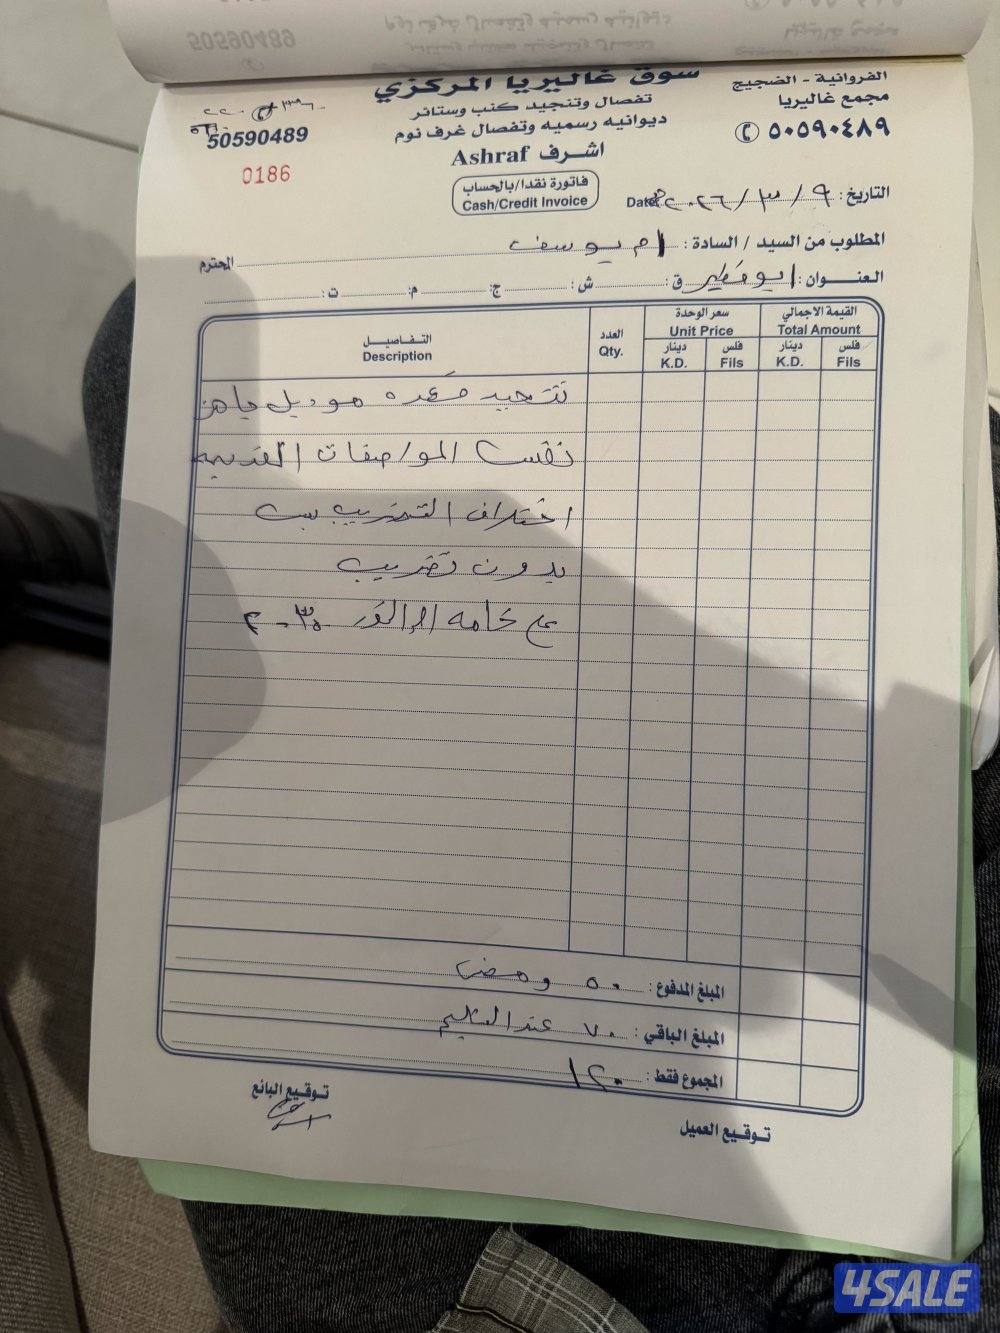 50590489
سوق غاليريا المركزي
تفصال وتنجيد كنب وستائر
ديوانيه رسميه وتفصال غرف نوم
اشرف Ashraf
فاتورة نقدا/بالحساب
Cash/Credit Invoice
الفروانية - الضجيج
مجمع غاليريا
٥٠٥٩٠٤٨٩
50590489
0186
التاريخ: ٩ / ٣ / ٢٠٢٦ Date
المطلوب من السيد / السادة: ام يوسف المحترم
العنوان: ابو فطير ق: ش: ج: م: ت:
التفاصيل
Description
العدد
Qty.
سعر الوحدة
Unit Price
القيمة الاجمالي
Total Amount
دينار
K.D.
فلس
Fils
دينار
K.D.
فلس
Fils
تنجيد موديل جاهز
نفس المواصفات القديمه
اختلاف التضريب
بدون تضريب
على خامه
المبلغ المدفوع: ٥٠
المبلغ الباقي: ٧٠ عند التسليم
المجموع فقط: ١٢٠
توقيع البائع
توقيع العميل
4SALE